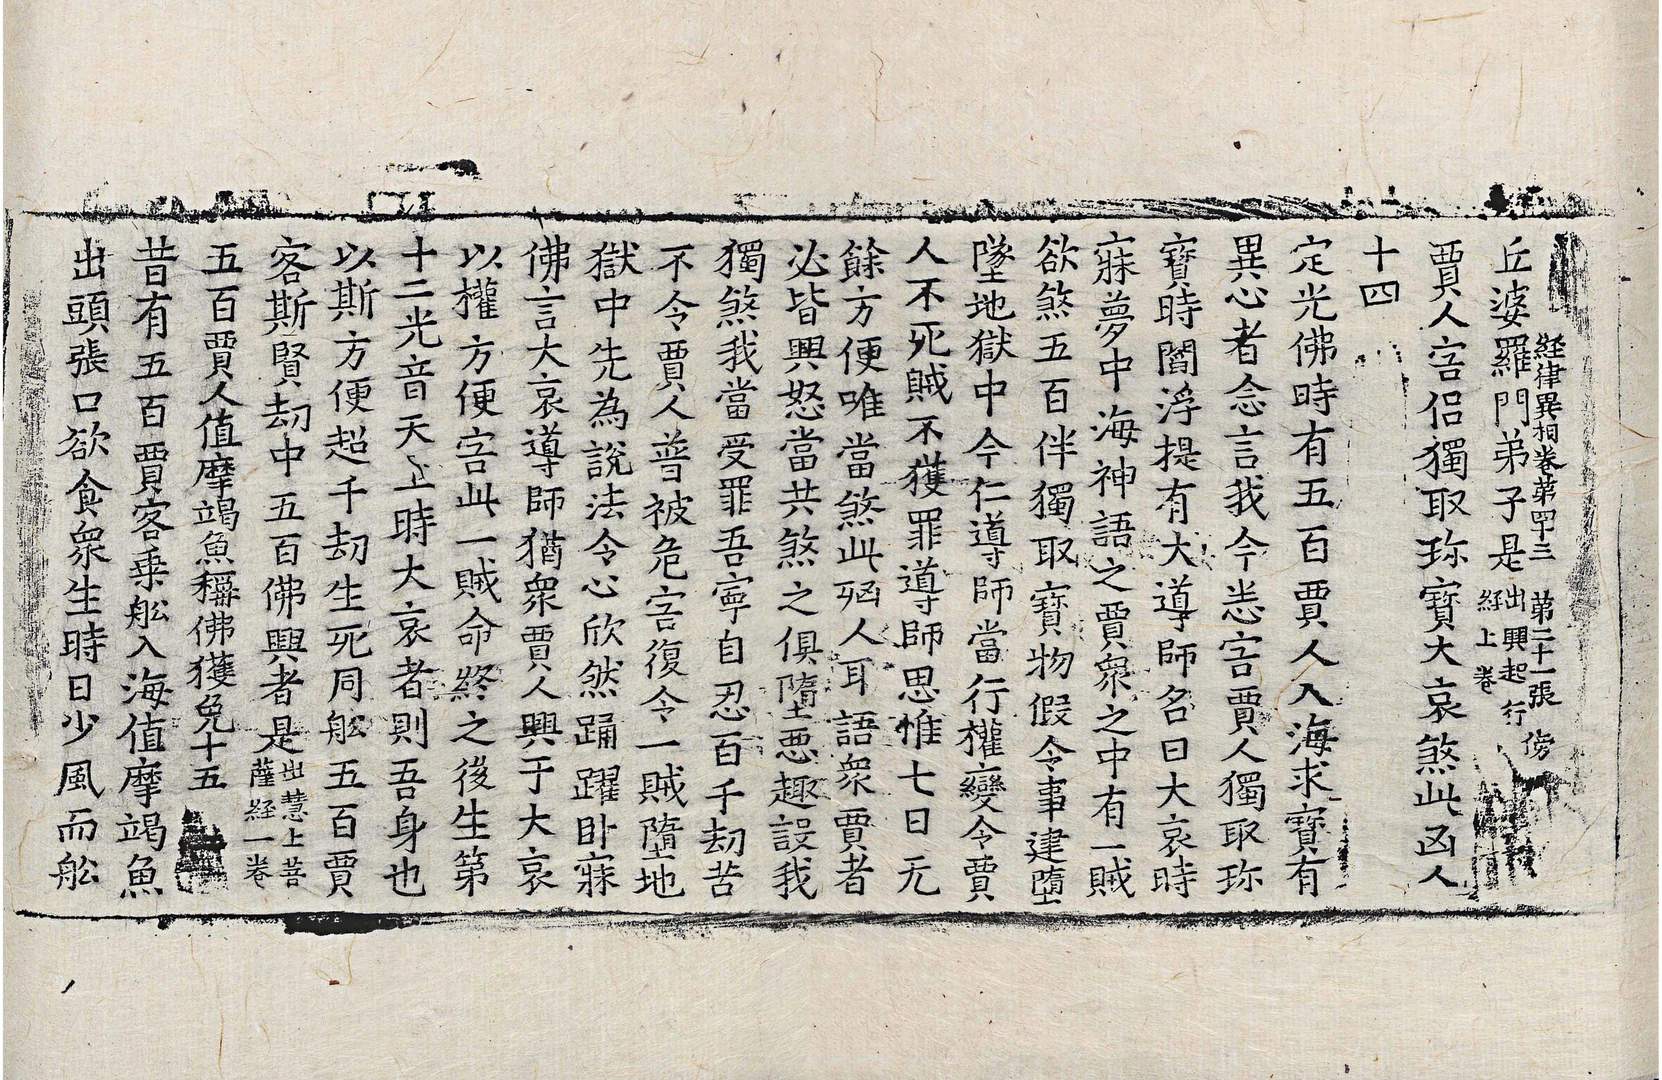 経律異相卷第罕三 第二十一張 傍
丘婆羅門弟子是出興起行経上卷
賈人害侣獨取珎寶大哀煞此凶人
十四
定光佛時有五百賈人入海求寶有
異心者念言我今恙害賈人獨取珎
寶時閻浮提有大導師名曰大哀時
寐夢中海神語之賈衆之中有一賊
欲煞五百伴獨取寶物假令事建墮
墜地獄中今仁導師當行權變令賈
人不死賊不獲罪導師思惟七日无
餘方便唯當煞此㓙人耳語衆賈者
必皆興怒當共煞之俱墮惡趣設我
獨煞我當受罪吾寧自忍百千劫苦
不令賈人普被危害復令一賊墮地
獄中先為說法令心欣然踊躍卧寐
佛言大哀導師猶衆賈人興于大哀
以權方便害此一賊命終之後生第
十二光音天上時大哀者則吾身也
以斯方便超千劫生死同舩五百賈
客斯賢劫中五百佛興者是出慧上菩薩経一卷
五百賈人值摩竭魚稱佛獲免十五
昔有五百賈客乗舩入海值摩竭魚
出頭張口欲食衆生時日少風而舩